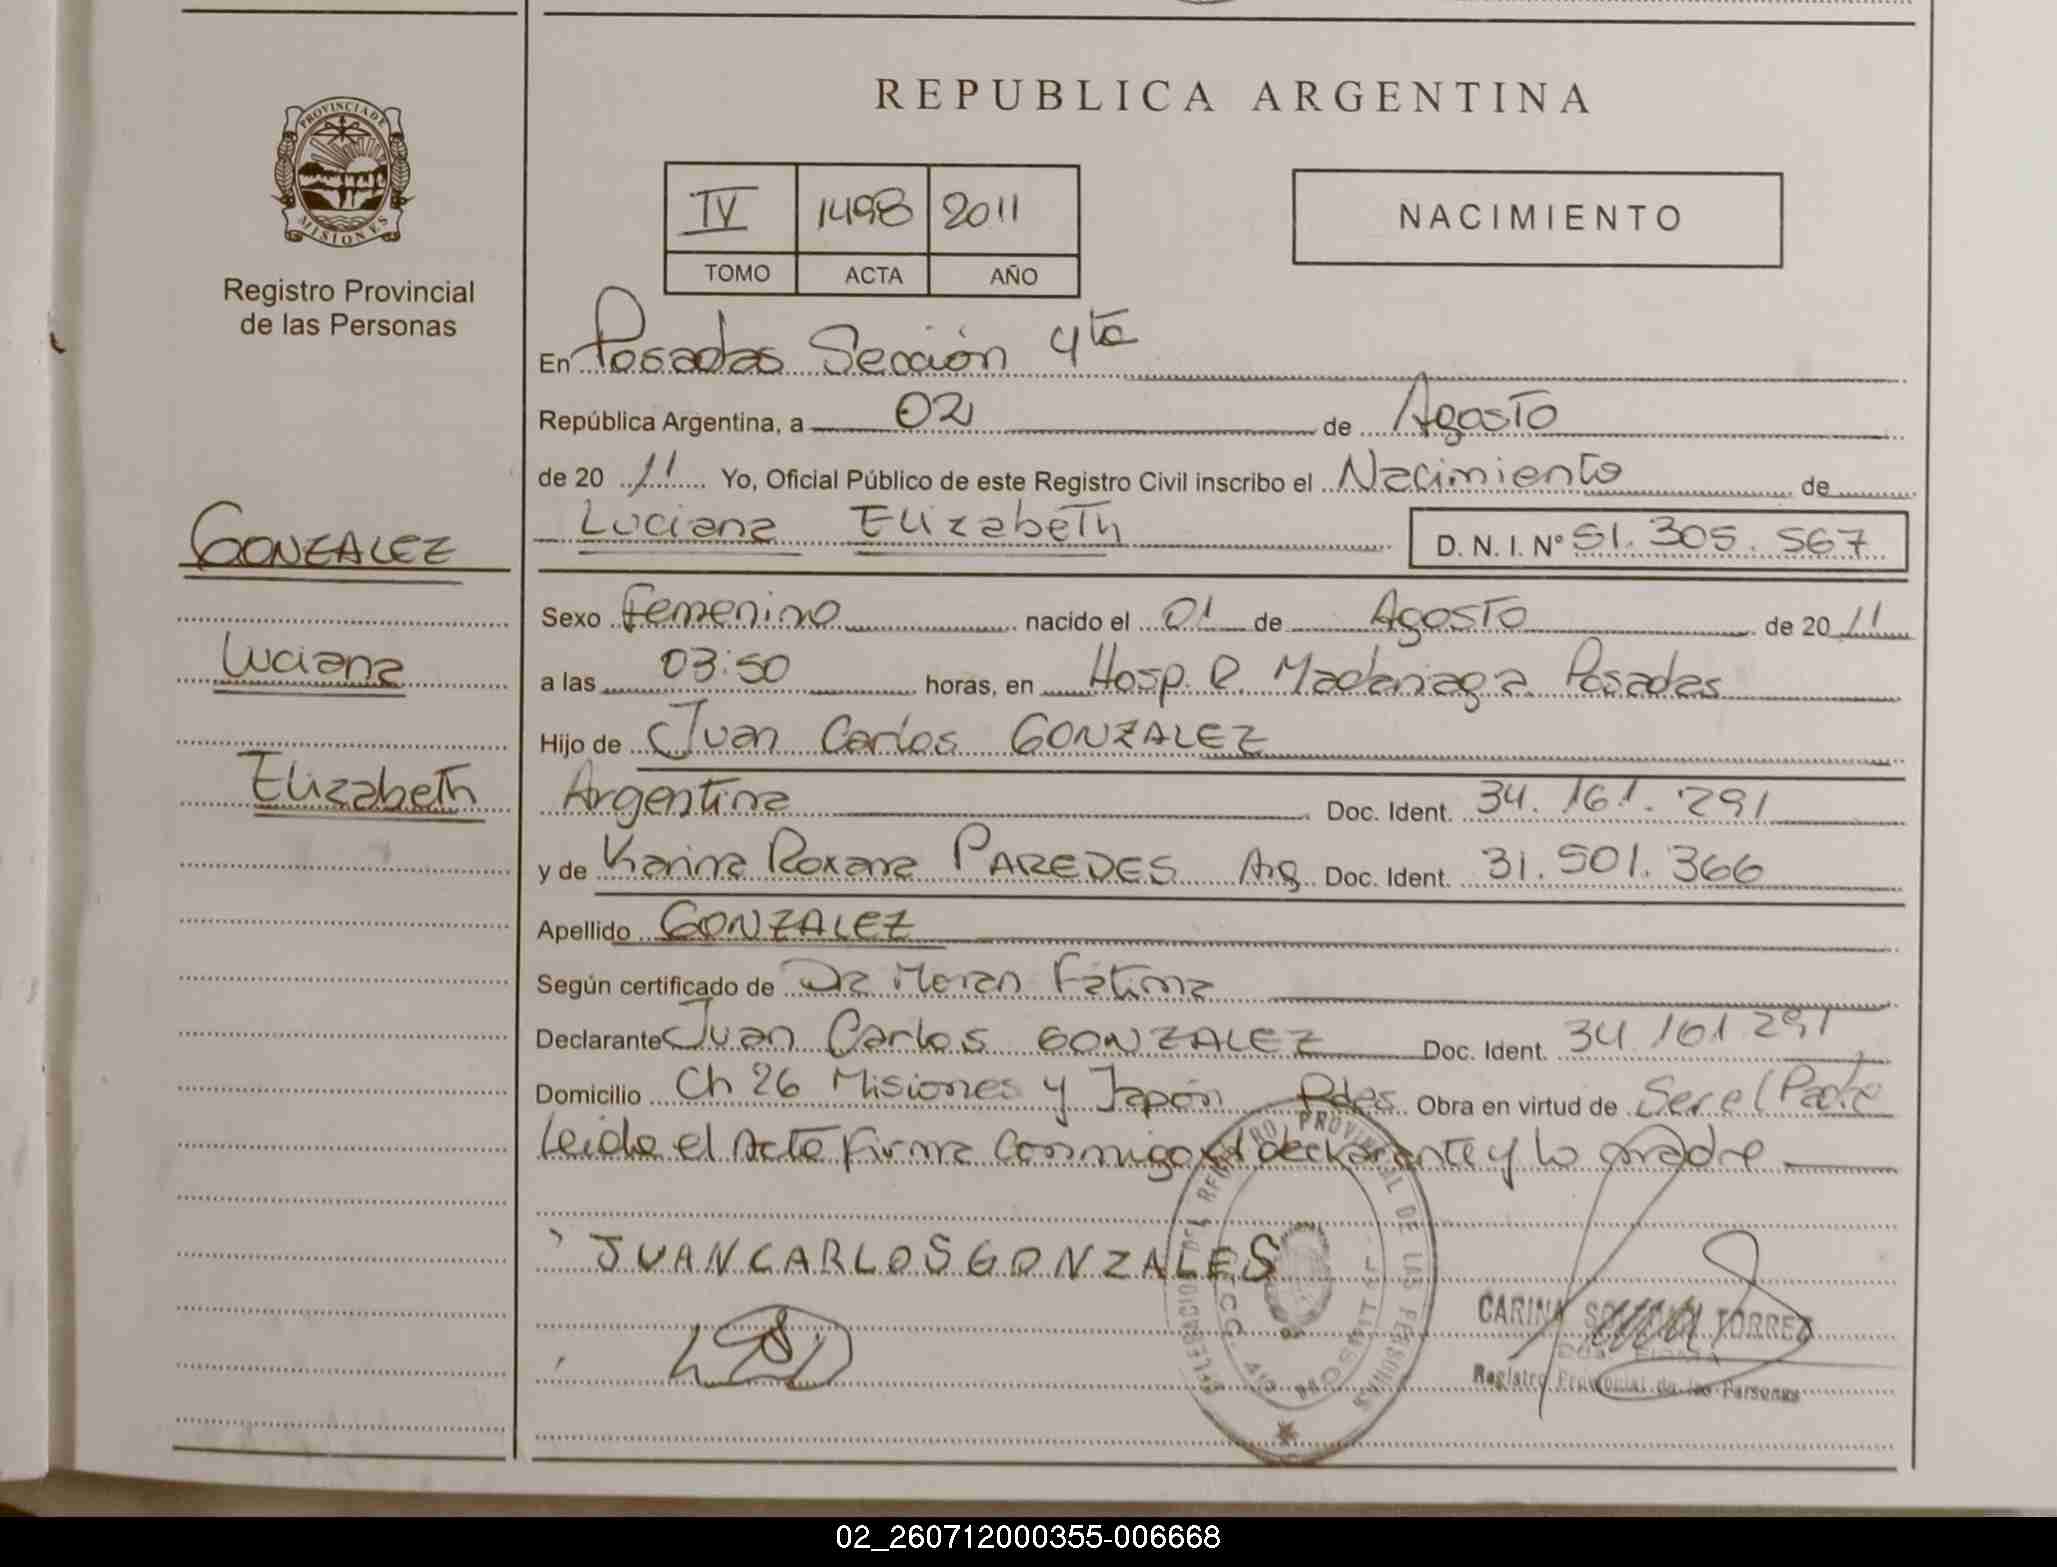 REPUBLICA ARGENTINA
PROVINCIA DE
MISIONES
Registro Provincial
de las Personas
IV 1498 2011
TOMO ACTA AÑO
NACIMIENTO
En Posadas Sección 4ta
República Argentina, a 02 de Agosto
de 20 11 Yo, Oficial Público de este Registro Civil inscribo el Nacimiento de
Luciana Elizabeth D. N. I. Nº 51.305.567
GONZALEZ
Luciana
Elizabeth
Sexo femenino nacido el 01 de Agosto de 20 11
a las 03:50 horas, en Hosp. R. Madariaga Posadas
Hijo de Juan Carlos GONZALEZ
Argentina Doc. Ident. 34.161.291
y de Karina Roxana PAREDES Arg Doc. Ident. 31.501.366
Apellido GONZALEZ
Según certificado de Dra Moran Fátima
Declarante Juan Carlos GONZALEZ Doc. Ident. 34 161 291
Domicilio Ch 26 Misiones y Japón Pdas Obra en virtud de Ser el Padre
Leida el Acta firma conmigo el declarante y la madre
JUAN CARLOS GONZALES
DELEGACION DEL REGISTRO PROVINCIAL DE LAS PERSONAS
CARINA TORREZ
Registro Provincial de las Personas
02_260712000355-006668